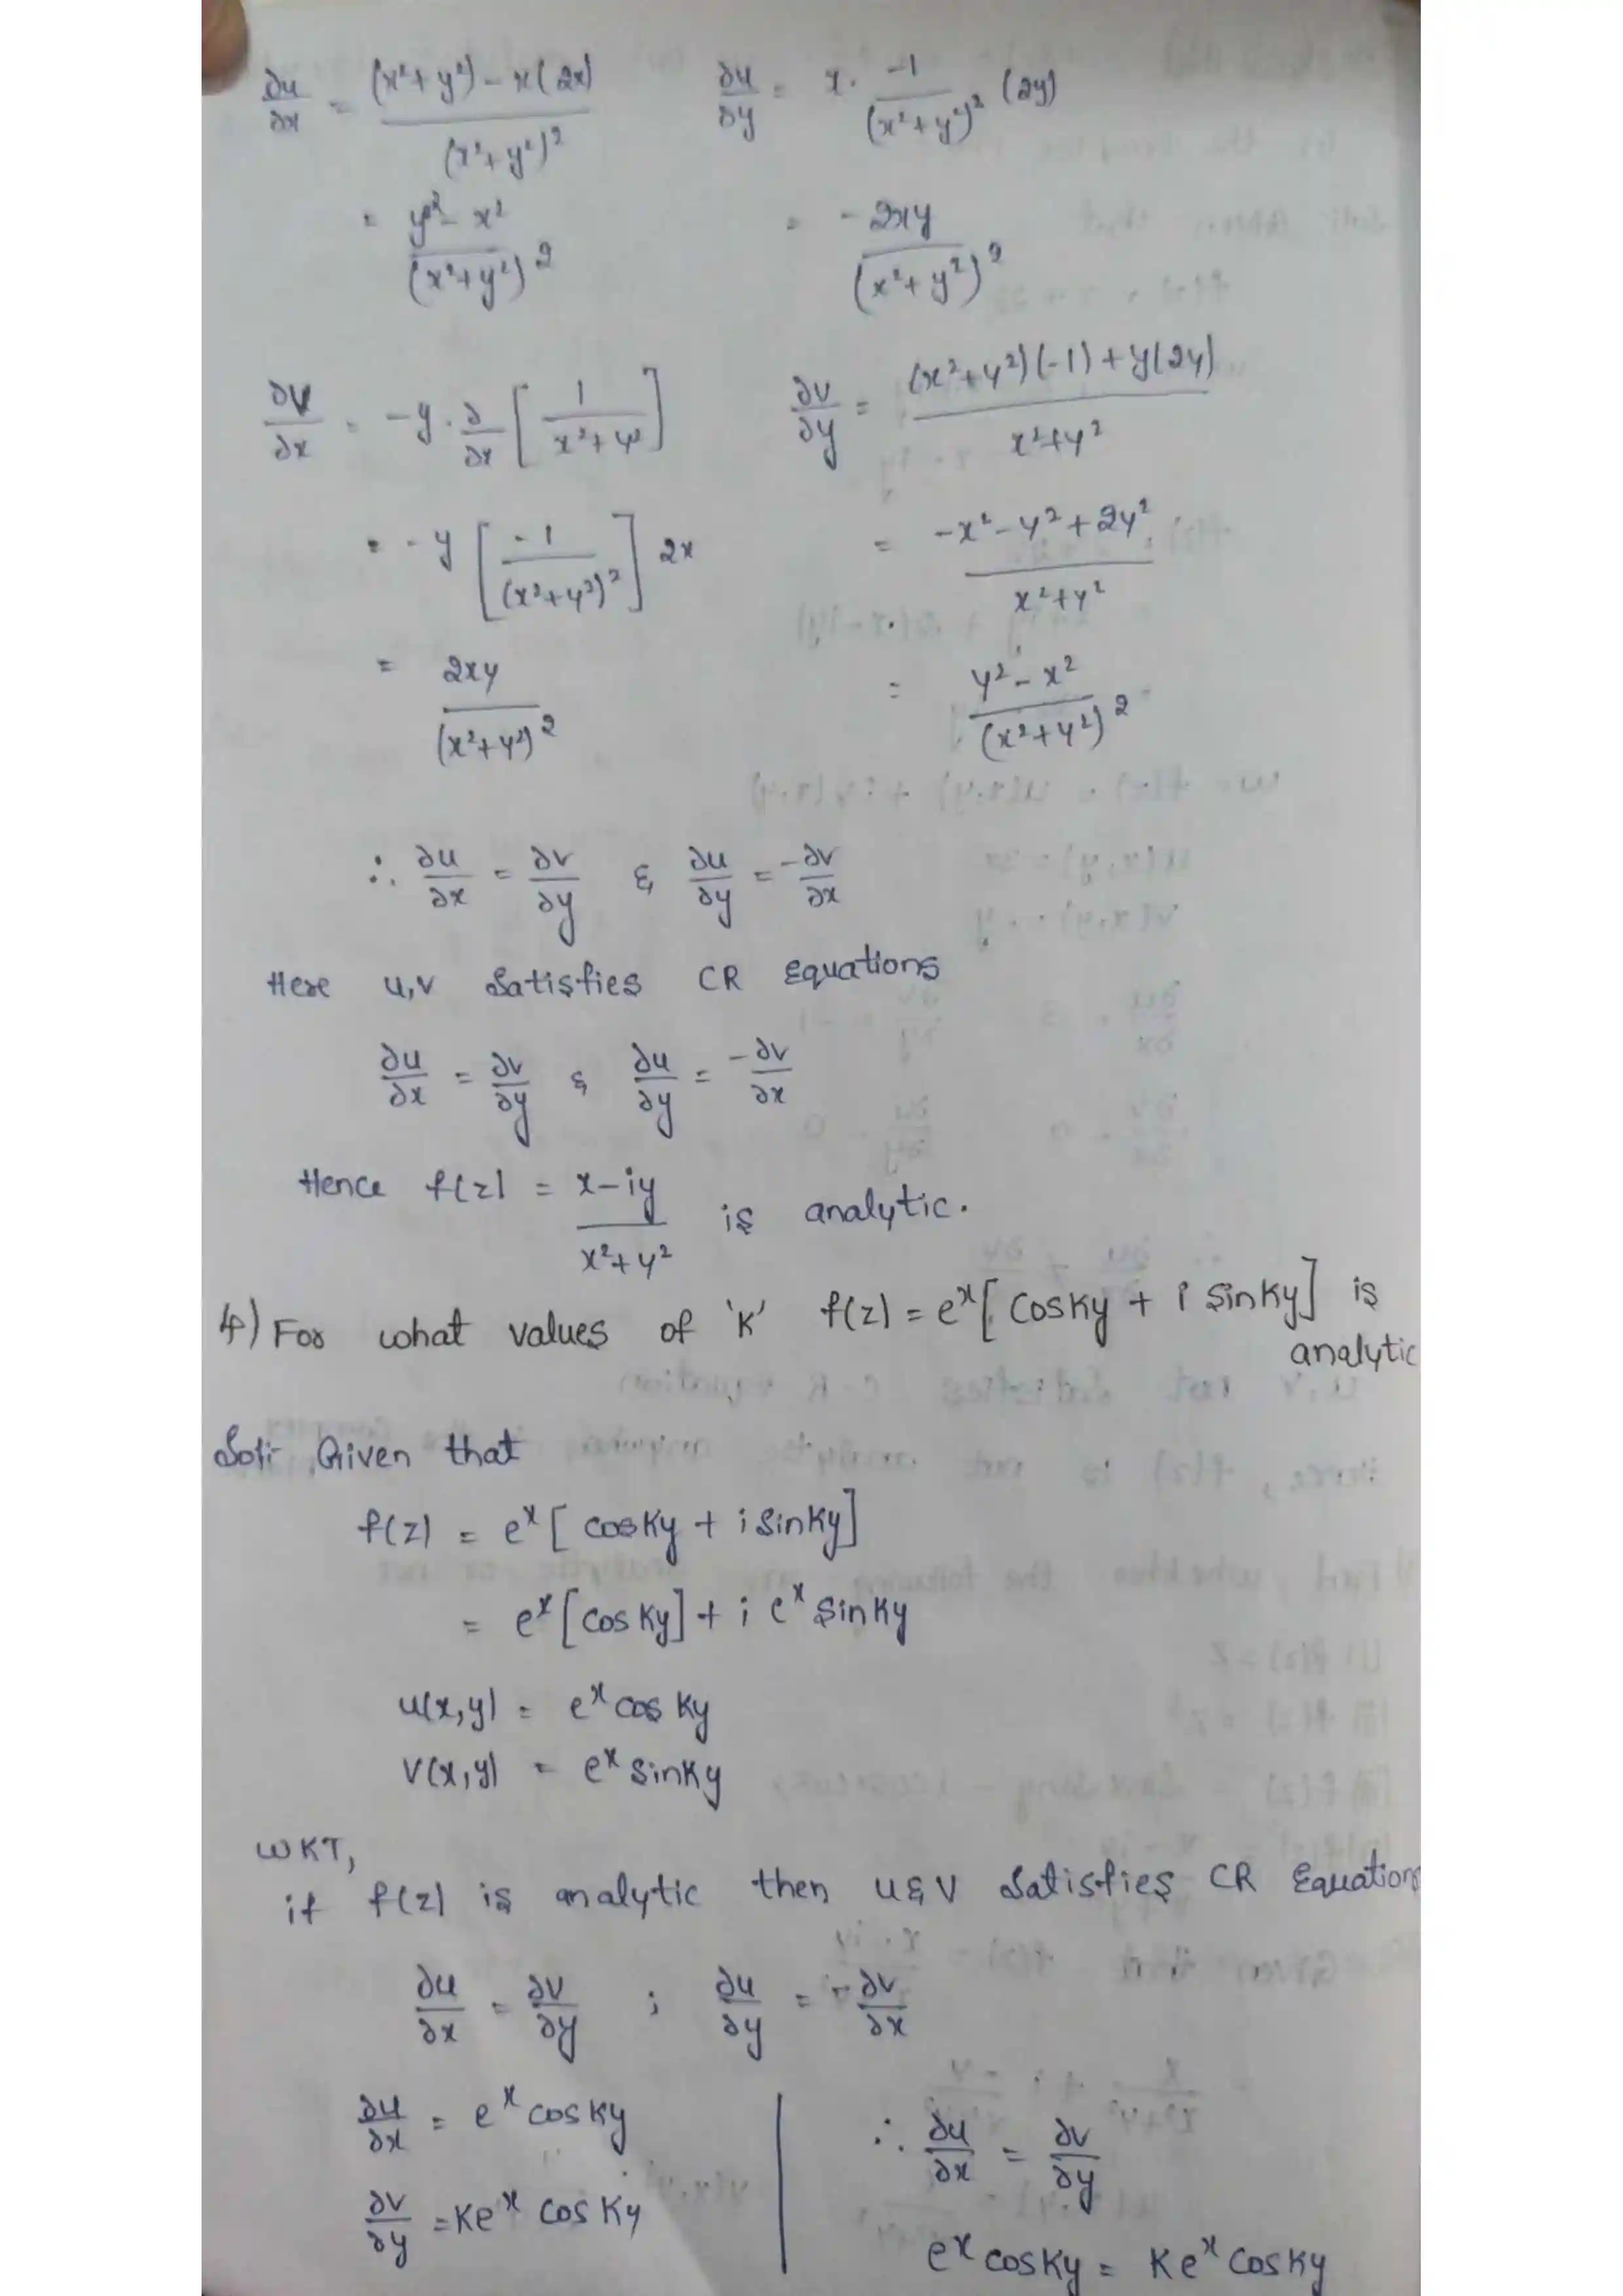 ∂u/∂x = (x²+y²) - x(2x) / (x²+y²)²    ∂u/∂y = x · -1/(x²+y²)² (2y)
= y² - x² / (x²+y²)²    = -2xy / (x²+y²)²
∂v/∂x = -y · ∂/∂x [1/(x²+y²)]    ∂v/∂y = (x²+y²)(-1) + y(2y) / x²+y²
= -y [-1/(x²+y²)²] 2x    = -x² - y² + 2y² / x²+y²
= 2xy / (x²+y²)²    = y² - x² / (x²+y²)²
∴ ∂u/∂x = ∂v/∂y & ∂u/∂y = -∂v/∂x
Here u,v Satisfies CR Equations
∂u/∂x = ∂v/∂y & ∂u/∂y = -∂v/∂x
Hence f(z) = x-iy / x²+y² is analytic.
4) For what values of 'K' f(z) = eˣ[cosKy + i sinKy] is
analytic
Sol:- Given that
f(z) = eˣ[cosKy + i sinKy]
= eˣ[cos Ky] + i eˣ sinKy
u(x,y) = eˣ cos Ky
v(x,y) = eˣ sinKy
WKT,
if f(z) is analytic then u & v Satisfies CR Equations
∂u/∂x = ∂v/∂y ; ∂u/∂y = -∂v/∂x
∂u/∂x = eˣ cosKy    ∴ ∂u/∂x = ∂v/∂y
∂v/∂y = Keˣ cos Ky    eˣ cosKy = Keˣ cosKy